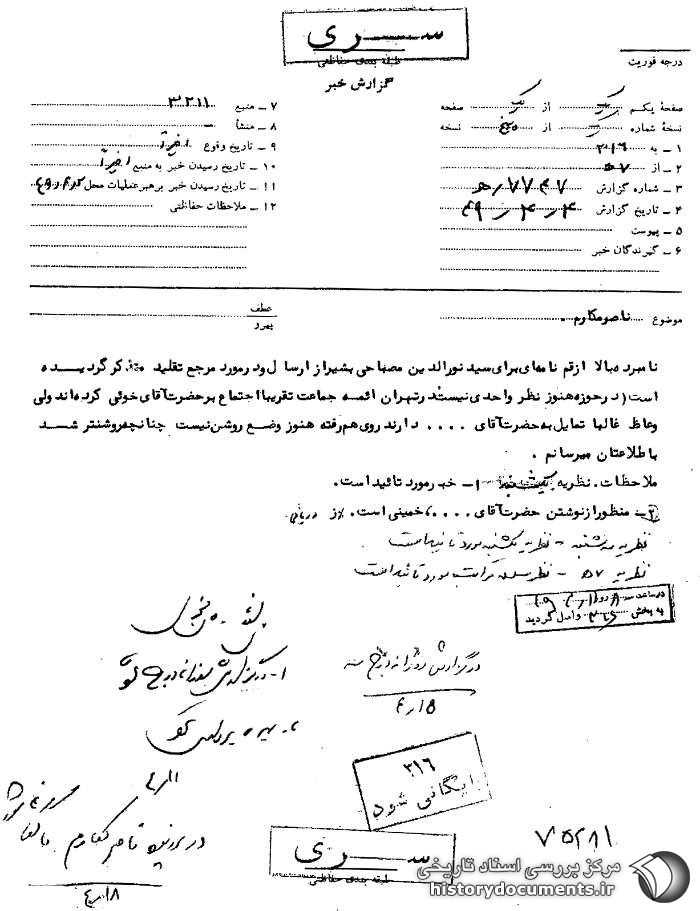 ســـری
طبقه بندی حفاظتی
گزارش خبر
درجه فوریت
صفحه یکم از صفحه
نسخه شماره از نسخه
۱ ـ به ۳۱۶
۲ ـ از ۵۷
۳ ـ شماره گزارش
۴ ـ تاریخ گزارش ۴۹٫۴٫۴
۵ ـ پیوست
۶ ـ گیرندگان خبر
۷ ـ منبع ۳۲۱۱
۸ ـ منشأ
۹ ـ تاریخ وقوع اخیراً
۱۰ ـ تاریخ رسیدن خبر به منبع اخیراً
۱۱ ـ تاریخ رسیدن خبر برهبر عملیات محل
۱۲ ـ ملاحظات حفاظتی
موضوع ناصر مکارم .
عطف
پیرو
نامبرده بالا از قم نامه‌ای برای سید نورالدین مصباحی بشیراز ارسال و در مورد مرجع تقلید متذکر گردیده
است (در حوزه هنوز نظر واحدی نیست در تهران ائمه جماعت تقریبا اجتماع بر حضرت آقای خوئی کرده‌اند ولی
وعاظ غالبا تمایل به حضرت آقای .... دارند روی هم رفته هنوز وضع روشن نیست چنانچه روشنتر شد
باطلاعتان میرسانم .
ملاحظات. نظریه یکشنبه ۱ـ خبر مورد تائید است.
۲ـ منظور از نوشتن حضرت آقای ....، خمینی است.
نظریه سه شنبه - نظریه یکشنبه مورد تائید است
نظریه ۵۷ - مورد تائید است
در ساعت روز
به بخش ۳۱۶ واصل گردید
در گزارش روزانه درج شد
۴٫۱۵
۱- در گزارش روزانه درج شود
۴٫۱۱
۳۱۶
بایگانی شود
در پرونده ناصر مکارم بایگانی
۴٫۱۸
ســـری
طبقه بندی حفاظتی
۷۵۲۸۱
مرکز بررسی اسناد تاریخی
historydocuments.ir